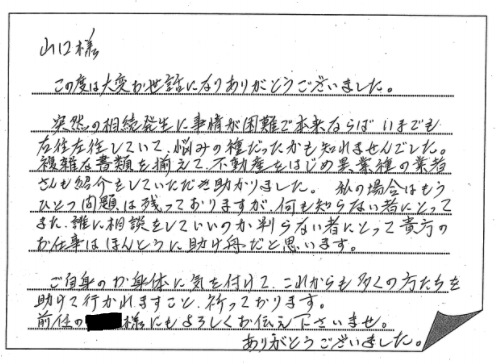 山口様
この度は大変お世話になりありがとうございました。
突然の相続発生に事情が困難で本来ならばいまでも
右往左往していて、悩みの種だったかも知れませんでした。
複雑な書類を揃えて、不動産をはじめ異業種の業者
さんも紹介をしていただき助かりました。 私の場合はもう
ひとつ問題は残っておりますが、何も知らない者にとって
また、誰に相談をしていいのか判らない者にとって貴方の
お仕事はほんとうに助け舟だと思います。
ご自身のお身体に気を付けて、これからも多くの方たちを
助けて行かれますこと、祈っております。
前任の様にもよろしくお伝え下さいませ。
ありがとうございました。